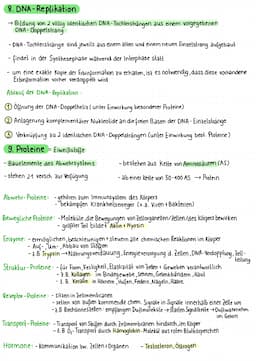 8. DNA-Replikation
→ Bildung von 2 völlig identischen DNA-Tochtersträngen aus einem vorgegebenen
DNA-Doppelstrang
- DNA-Tochterstränge sind jeweils aus einem alten und einem neuen Einzelstrang aufgebaut
- findet in der Synthesephase während der Interphase statt
- um eine exakte Kopie der Erbinformation zu erhalten, ist es notwendig, dass diese vorhandene
Erbinformation vorher verdoppelt wird
Ablauf der DNA-Replikation:
① Öffnung der DNA-Doppelhelix (unter Einwirkung besonderer Proteine)
② Anlagerung komplementärer Nukleotide an die freien Basen der DNA-Einzelstränge
③ Verknüpfung zu 2 identischen DNA-Doppelsträngen (unter Einwirkung best. Proteine)
9. Proteine = Eiweißstoffe
- Bauelemente des Abwehrsystems - bestehen aus Kette von Aminosäuren (AS)
- stehen 21 versch. zur Verfügung - ab einer Kette von 50-100 AS → Protein
Abwehr-Proteine: - gehören zum Immunsystem des Körpers
- bekämpfen Krankheitserreger (z.B. Viren + Bakterien)
Bewegliche Proteine: - Moleküle, die Bewegungen von Zellorganellen/Zellen/des Körpers bewirken
- größter Teil bildet Aktin + Myosin
Enzyme: - ermöglichen, beschleunigen + steuern alle chemischen Reaktionen im Körper
- Auf-, Um-, Abbau von Stoffen
- z.B. Trypsin → Nahrungsverdauung, Energieversorgung d. Zellen, DNA-Verdopplung, Zell-
teilung
Struktur-Proteine: - für Form, Festigkeit, Elastizität von Zellen + Geweben verantwortlich
- z.B. Kollagen in Bindegewebe, Sehnen, Gelenkkapseln, Haut
- z.B. Keratin in Haaren, Hufen, Federn, Nägeln, Haare
Rezeptor-Proteine: - sitzen in Zellmembranen
- setzen von außen kommende chem. Signale in Signale innerhalb einer Zelle um
Transport-Proteine: - Transport von Stoffen durch Zellmembranen hindurch, im Körper
- z.B. O₂-Transport durch Hämoglobin-Molekül aus roten Blutkörperchen
Hormone: - Kommunikation bw. Zellen + Organen - Testosteron, Östrogen